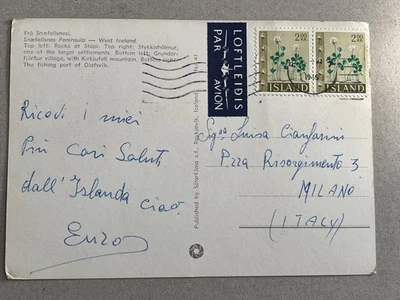 Frá Snæfellsnesi.
Snæfellsnes Peninsula — West Iceland.
Top left: Rocks at Stapa. Top right: Stykkishólmur,
one of the larger settlements. Bottom left: Grundar-
fjörður village, with Kirkjufell mountain. Bottom right:
The fishing port of Ólafsvík.
LOFTLEIÐIS
PAR AVION
2.00
ÍSLAND
2.00
ÍSLAND
Published by Sólarfilma s.f., Reykjavík, Iceland
Ricevi i miei
Più cari Saluti
dall'Islanda ciao.
Enzo
Sig.na Luisa Cianfarini
P.zza Risorgimento 3
MILANO
(ITALY)